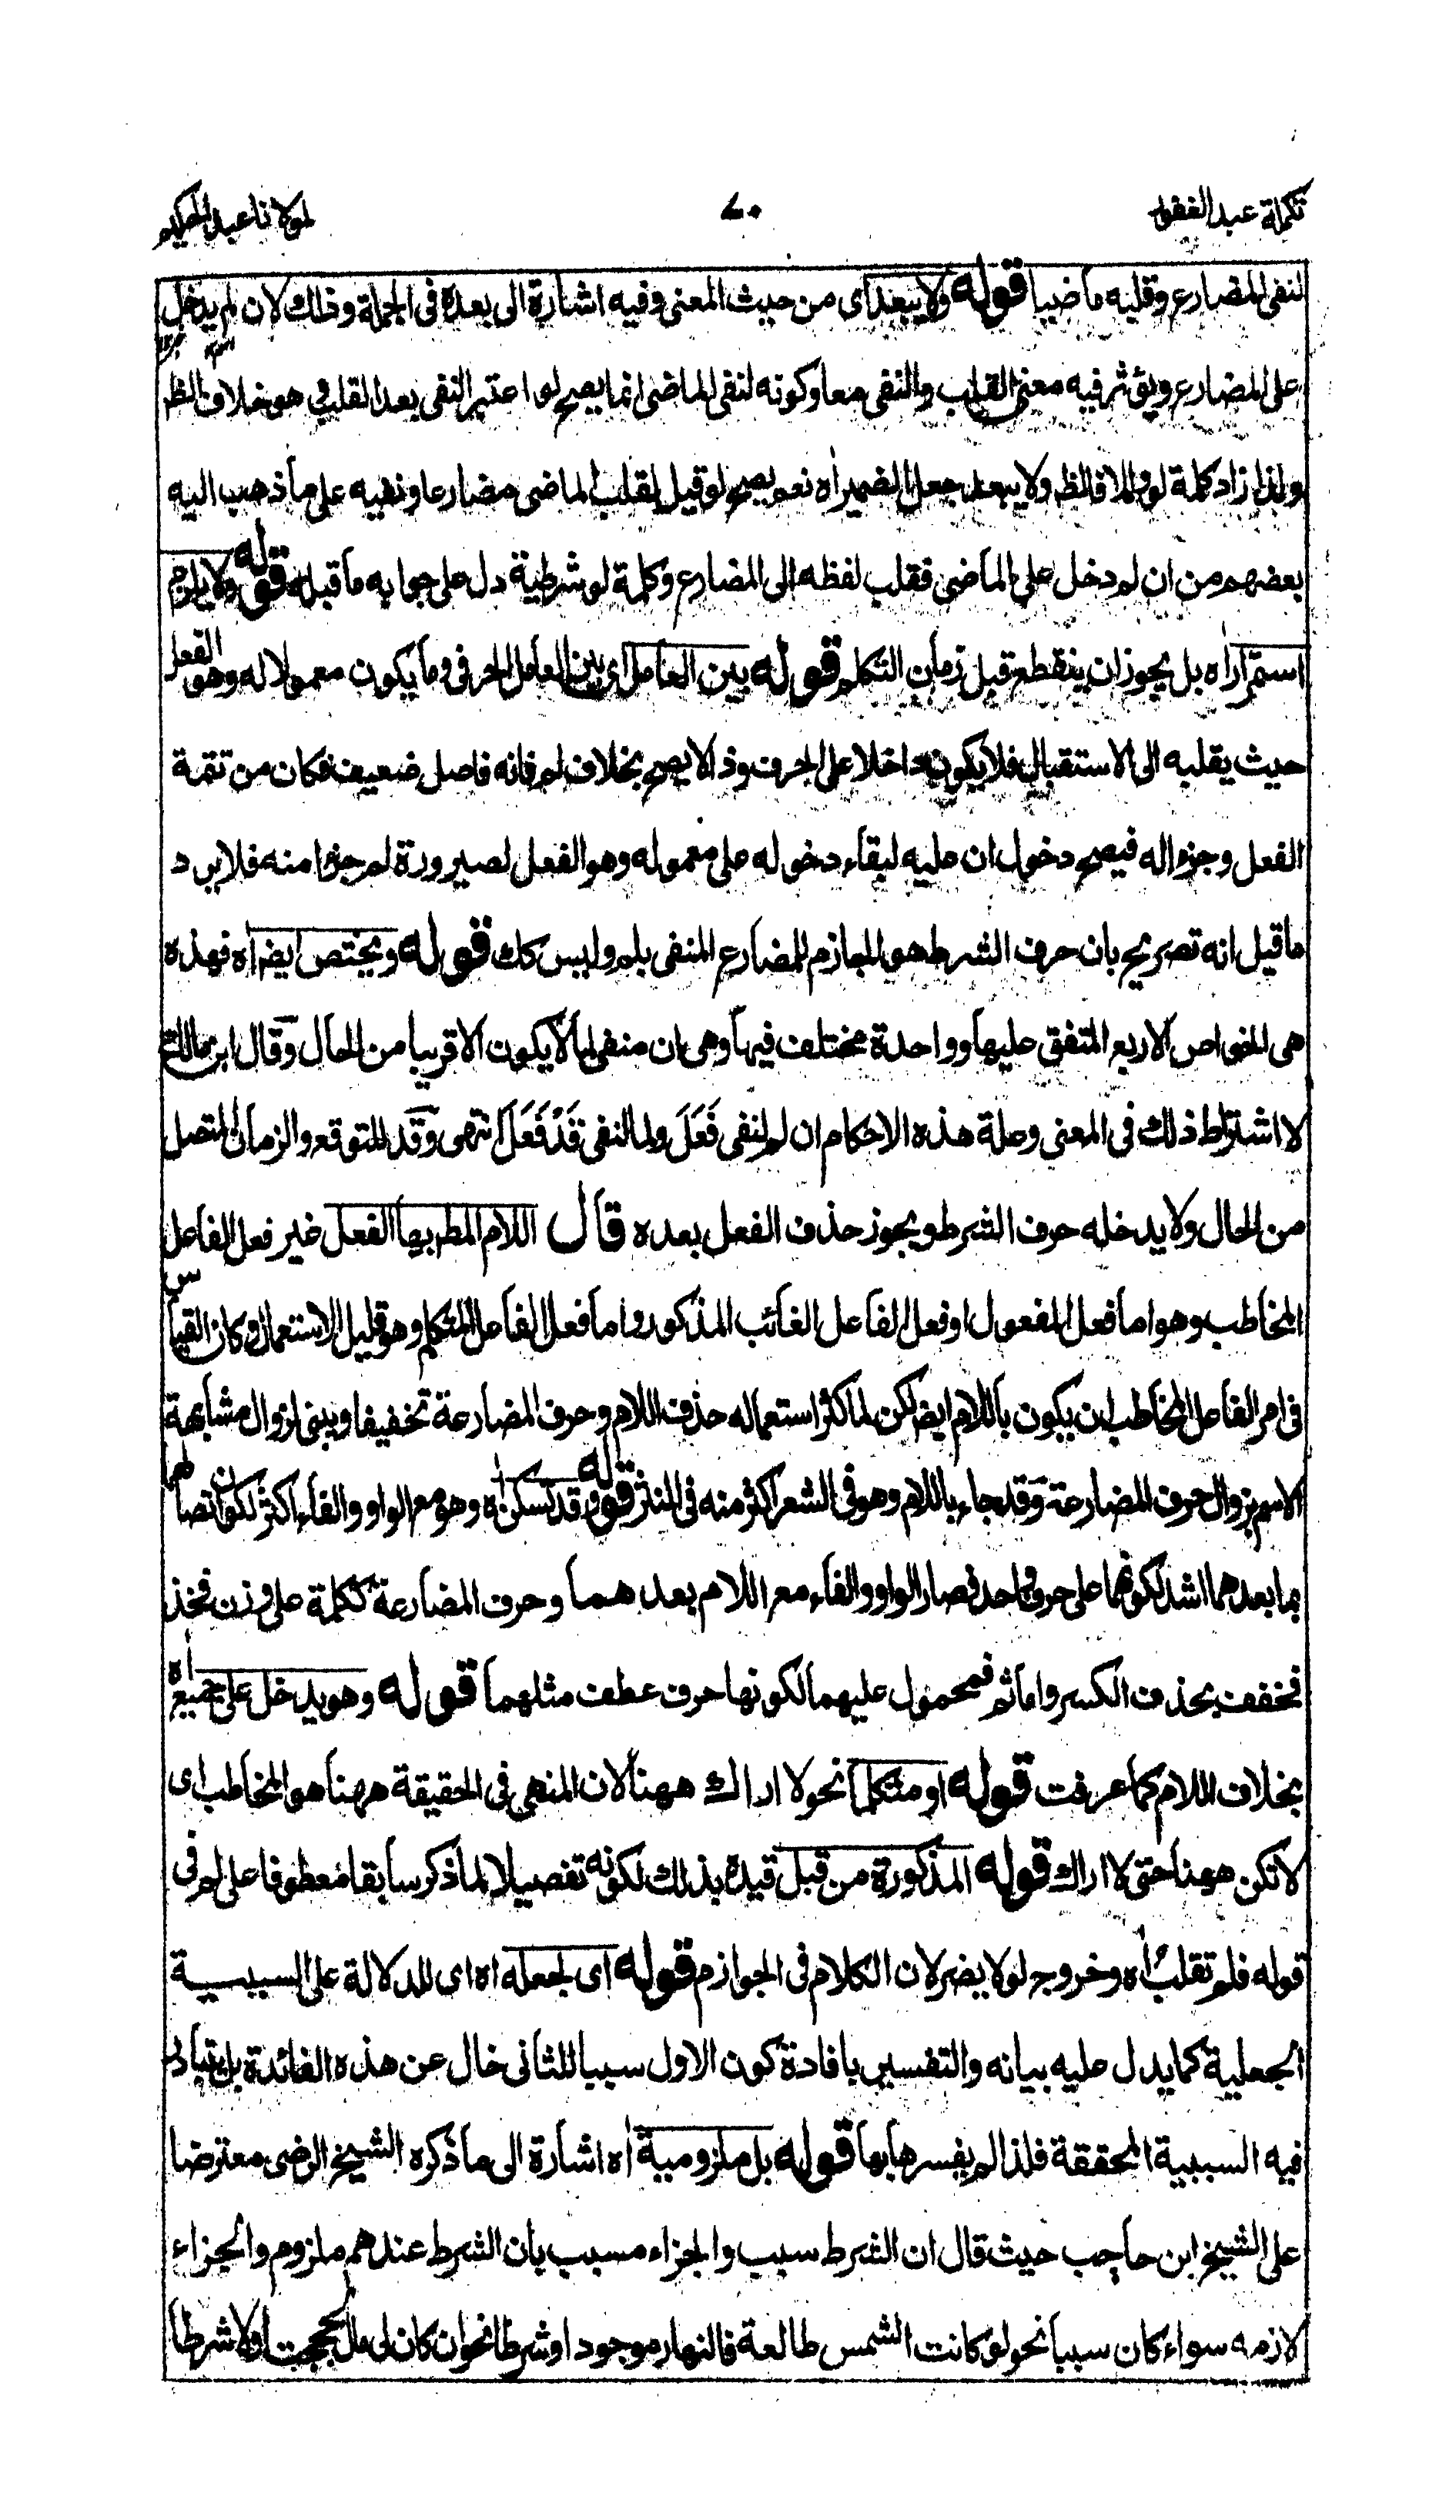 تكملة عبد الغفور
٧٠
لمولانا عبد الحكيم
لنفى المضارع وقلبه ماضيا قوله ولا يبعد اى من حيث المعنى وفيه اشارة الى بعده فى الجملة وذلك لان لم يدخل
على المضارع ويؤثر فيه معنى القلب والنفى معا وكونه لنفى الماضى انما يصح لو اعتبر النفى بعد القلب وهو خلاف الظ
ولذا زاد كلمة لو وللا فالظ ولا يبعد جعل الضمير اه نعم يصح لو قيل لقلب الماضى مضارعا ونفيه على ما ذهب اليه
بعضهم من ان لم دخل على الماضى فقلب لفظه الى المضارع وكلمة لو شرطية دل على جوابه ما قبله قوله ولا يلزم
استمرارا اه بل يجوز ان ينقطع قبل زمان التكلم قوله بين العامل اى بين العامل الحرفى وما يكون معمولا له وهو الفعل
حيث يقلبه الى الاستقبال فلا يكون داخلا على الحرف وذا لا يصح بخلاف لم فانه فاصل ضعيف فكان من تتمة
الفعل وجزءا له فيصح دخول ان عليه لبقاء دخوله على معموله وهو الفعل لصيرورة لم جزءا منه فلا يرد
ما قيل انه تصريح بان حرف الشرط هو الجازم للمضارع المنفى بلم وليس كك قوله ويختص ايضا اه فهذه
هى الخواص الاربع المتفق عليها وواحدة مختلف فيها وهى ان منفى لما لا يكون الا قريبا من الحال وقال ابن مالك
لا اشتراط ذلك فى المعنى وعلة هذه الاحكام ان لم لنفى فَعَلَ ولما لنفى قَدْ فَعَلَ انتهى وقد للتوقع والزمان المتصل
من الحال ولا يدخله حرف الشرط ويجوز حذف الفعل بعده قال اللام المط بها الفعل غير فعل الفاعل
المخاطب وهو اما فعل المفعول او فعل الفاعل الغائب المذكور واما فعل الفاعل المتكلم وهو قليل الاستعمال وكان القياس
فى امر الفاعل المخاطب ان يكون باللام ايضا لكن لما كثر استعماله حذف اللام وحرف المضارعة تخفيفا وبنى لزوال مشابهة
الاسم بزوال حرف المضارعة وقد جاء باللام وهو فى الشعر اكثر منه فى النثر قوله وقد تسكن اه وهو مع الواو والفاء اكثر لكون اتصالهما
بما بعدهما اشد لكونهما على حرف واحد فصار الواو والفاء مع اللام بعد هما وحرف المضارعة ككلمة على وزن فخذ
فخفف بحذف الكسر واما ثم فمحمول عليهما لكونها حرف عطف مثلهما قوله وهو يدخل على جميع اه
بخلاف اللام كما عرفت قوله او متكلما نحو لا اراك ههنا لان المنهى فى الحقيقة ههنا هو المخاطب اى
لا تكن ههنا حتى لا اراك قوله المذكورة من قبل قيده بذلك لكونه تفصيلا لما ذكر سابقا معطوفا على لم فى
قوله فلم تقلب اه وخروج لو لا يضر لان الكلام فى الجوازم قوله اى لجعله اه اى للدلالة على السببية
الجعلية كما يدل عليه بيانه والتفسير بافادة كون الاول سببا للثانى خال عن هذه الفائدة بل يتبادر
فيه السببية المحققة فلذا لم يفسرها بها قوله بل ملزومية اه اشارة الى ما ذكره الشيخ الرضى معترضا
على الشيخ ابن حاجب حيث قال ان الشرط سبب والجزاء مسبب بان الشرط عندهم ملزوم والجزاء
لازمه سواء كان سببا نحو لو كانت الشمس طالعة فالنهار موجود او شرطا نحو ان كان لى مال لحججت او لا شرطا